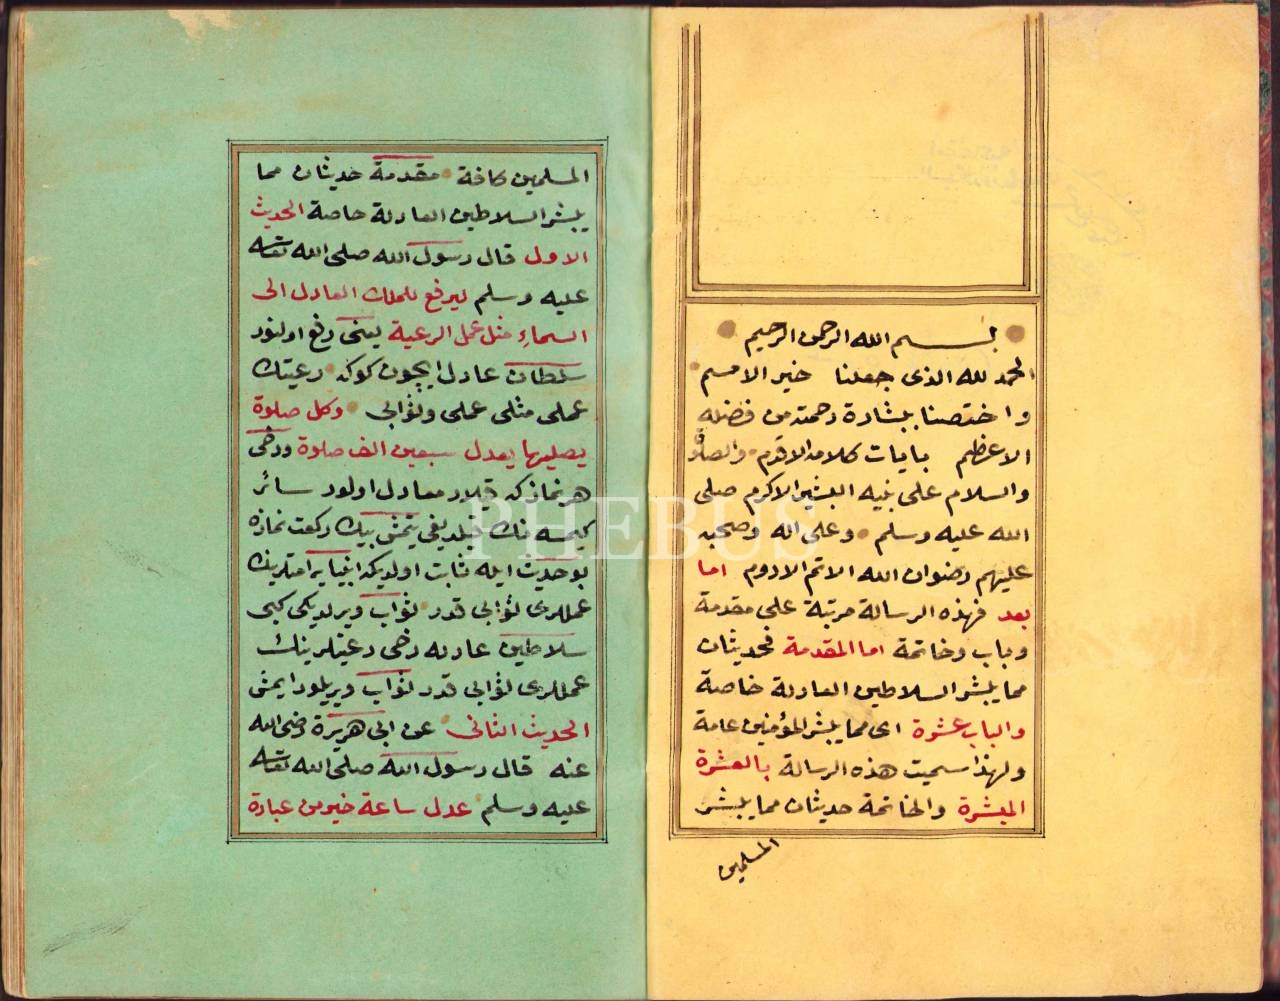 بسم الله الرحمن الرحيم
الحمد لله الذى جعلنا خير الامم
واختصنا ببشارة رحمته من فضله
الاعظم بايات كلامه الاقدم والصلوة
والسلام على نبيه البشير الاكرم صلى
الله عليه وسلم وعلى اله وصحبه
عليهم رضوان الله الاتم الادوم اما
بعد فهذه الرسالة مرتبة على مقدمة
وباب وخاتمة اما المقدمة فحديثان
مما يبشر السلاطين العادلة خاصة
والباب عشرة اى مما يبشر المؤمنين عامة
ولهذا سميت هذه الرسالة بالعشرة
المبشرة والخاتمة حديثان مما يبشر
المسلمين
المسلمين كافة مقدمة حديثان مما
يبشر السلاطين العادلة خاصة الحديث
الاول قال رسول الله صلى الله تعالى
عليه وسلم ليرفع للملك العادل الى
السماء مثل عمل الرعية يعنى رفع اولنور
سلطان عادل ايچون كوكه رعيتك
عملى مثلى عملى وثوابى وكل صلوة
يصليها يعدل سبعين الف صلوة ودخى
هر نماز كه قلار معادل اولور سائر
كيمسه نك يتمش بيك ركعت نمازه
بو حديث ايله ثابت اولديكه انبيايه امتلرينك
عمللرى ثوابى قدر ثواب ويرلديكى كبى
سلاطين عادله دخى رعيتلرينك
عمللرى ثوابى قدر ثواب ويريلور ايمش
الحديث الثانى عن ابى هريرة رضى الله
عنه قال رسول الله صلى الله تعالى
عليه وسلم عدل ساعة خير من عبادة
PHEBUS